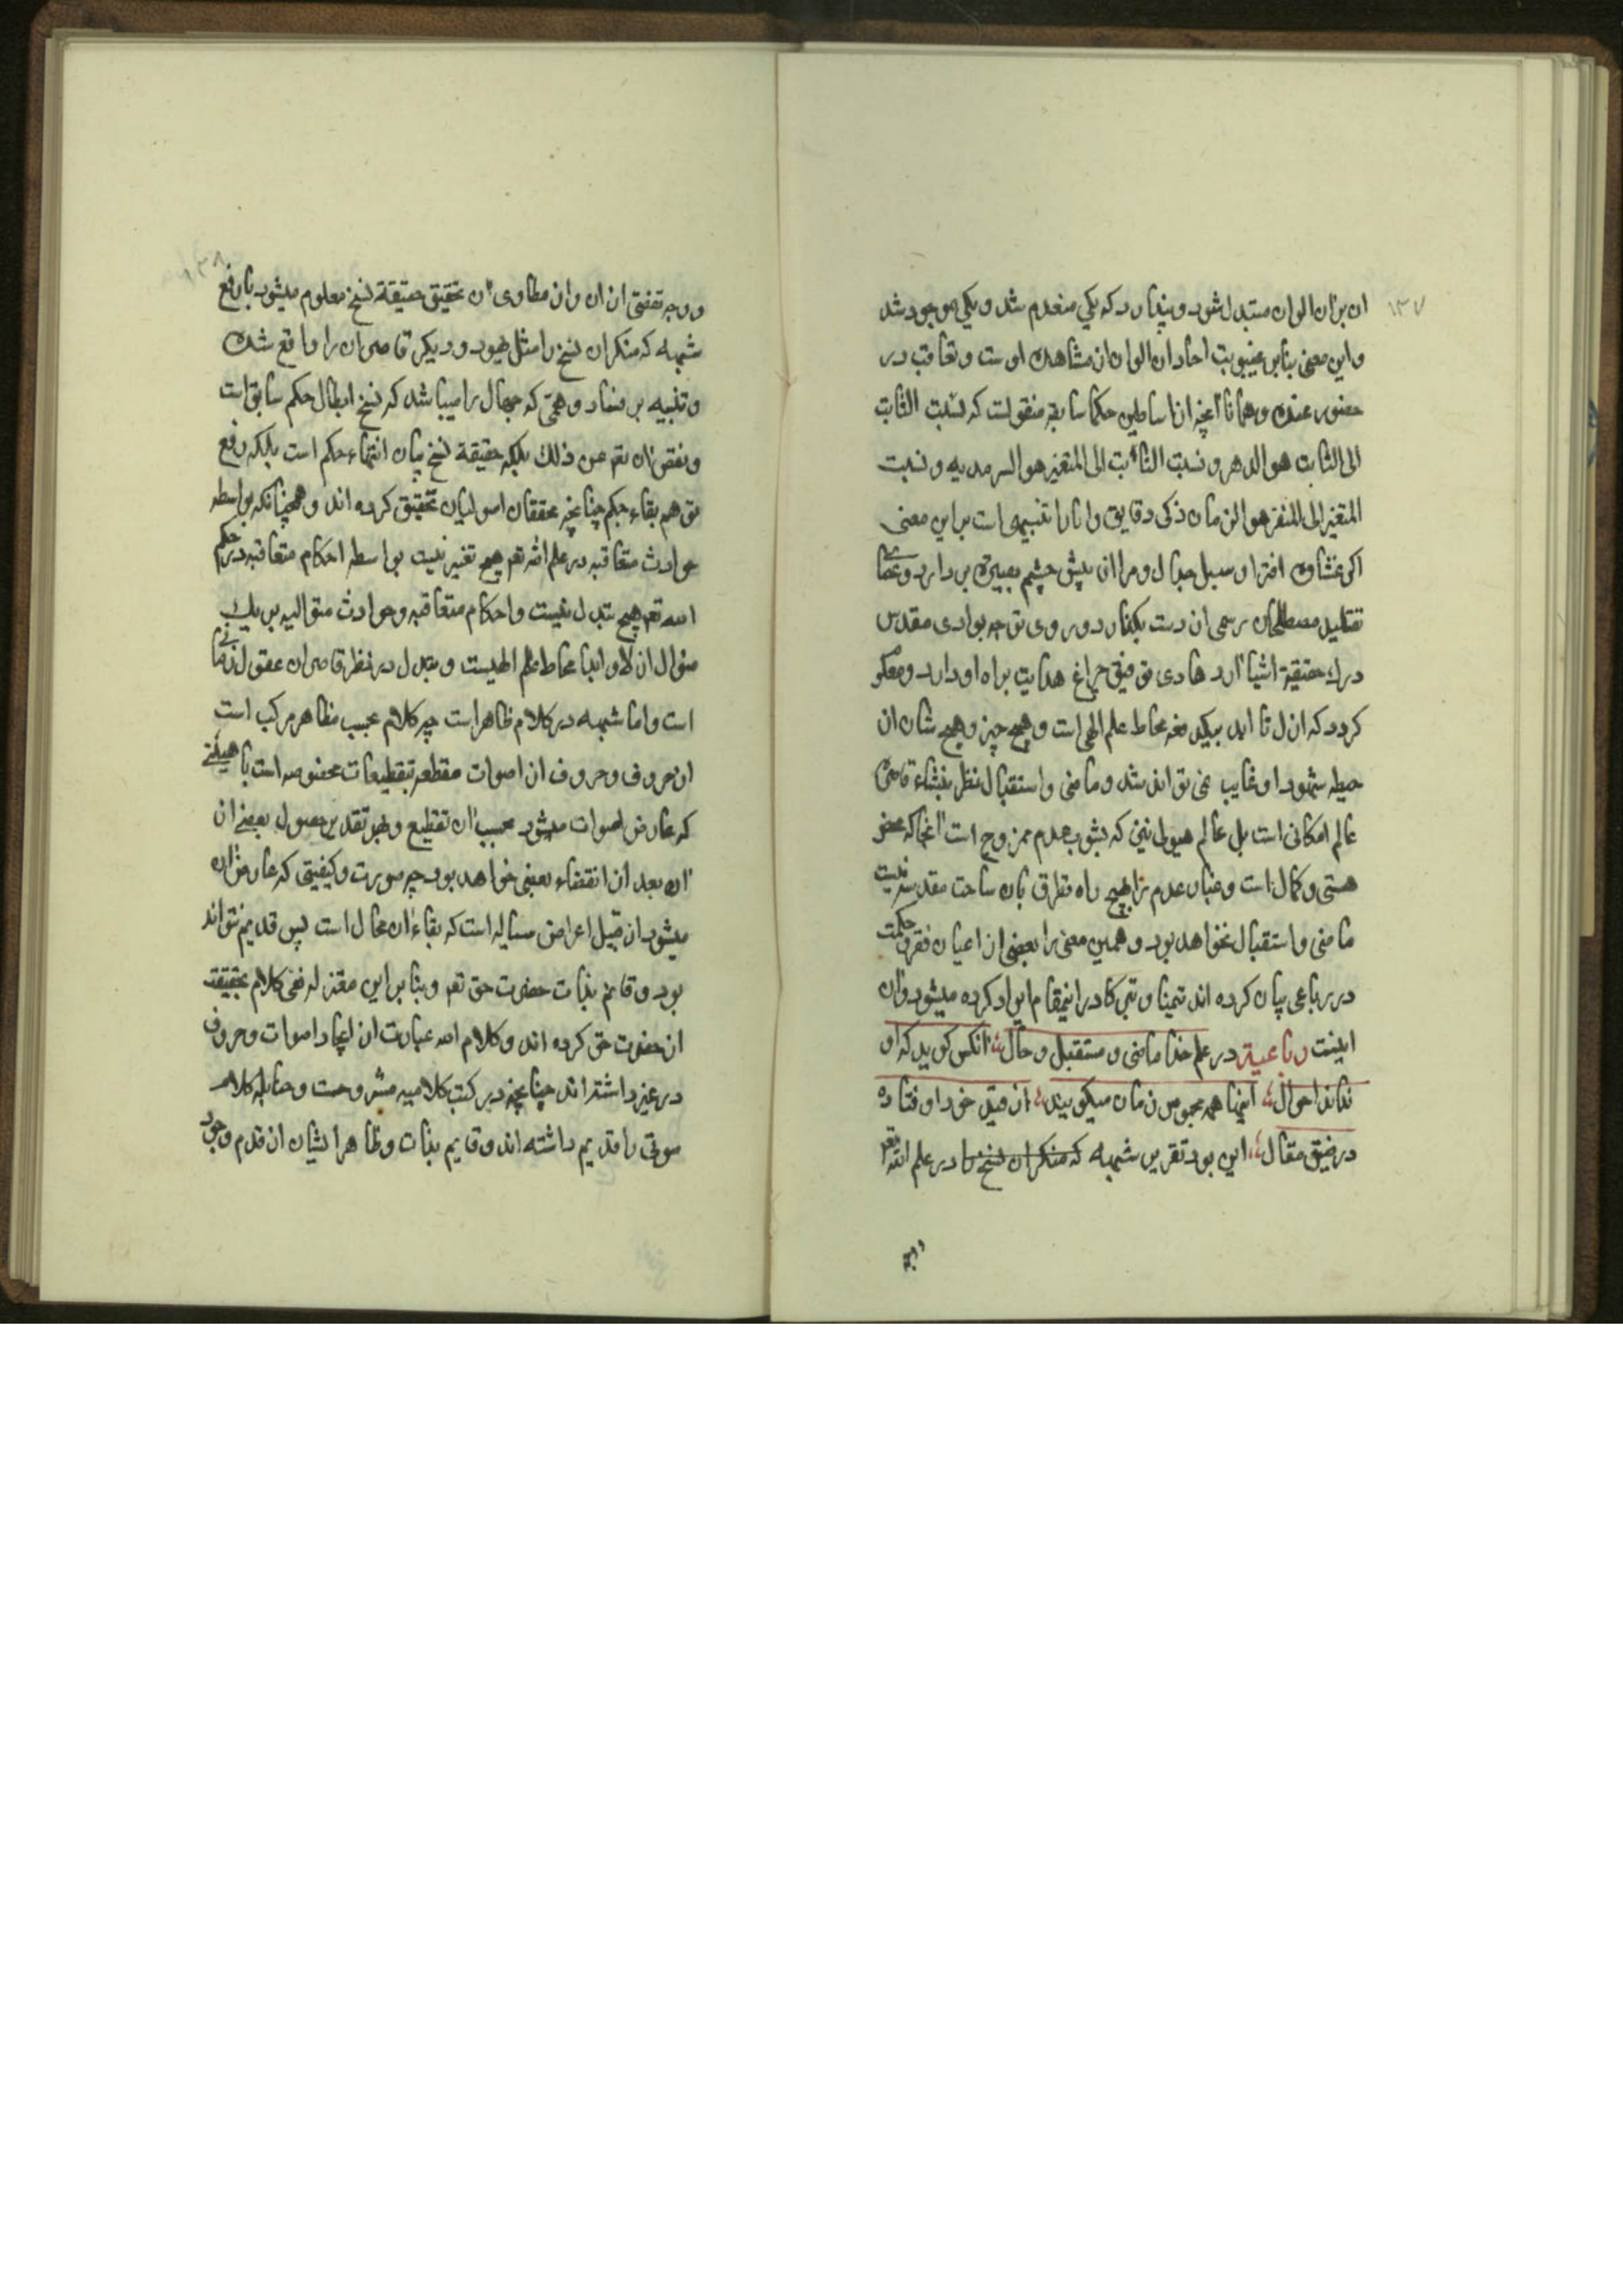 ۱۳۷
ان بران الوان متبدل شود و پندارد که یکی منعدم شد و یکی موجود شد
واین معنی بنابر غیبوبت احادان الوان از مشاهده اوست و تعاقب در
حضور عنده و همانا آنچه از اساطین حکما سابقه منقولست که نسبت الثابت
الی الثابت هو الدهر و نسبت الثابت الی المتغیر هو السرمدیه و نسبت
المتغیر الی المتغیر هو الزمان ذکی دقایق وانا را تنبیهی است بر این معنی
اکر غشاوه افترا و سبل جدال و مرا از پیش چشم بصیرت بر دارد و عصا
تقلید مصطلحان رسمی از دست بگذارد و روی توجه بوادی مقدس
درك حقیقة اشیا آرد هادی توفیق چراغ هدایت براه او دارد و
کردد که ازل تا ابد بیکدفعه محاط علم الهی است و هیچ چیز و هیچ شان از
حیطه شهود او غایب نمی تواند شد و ماضی و استقبال نظر بنشاء قاصره
عالم امکانی است بل عالم هیولی نیز که بشوب عدم ممزوج است آنجا که محض
هستی و کمال است و غبار عدم را هیچ راه تطرق بان ساحت مقدسه نیست
ماضی و استقبال نخواهد بود و همین معنی را بعضی از اعیان فقر و حکمت
در رباعی بیان کرده اند تیمنا و تبرکا در اینمقام ایراد کرده میشود وان
اینست رباعیة در علم خدا ماضی و مستقبل و حال ؛ انکس کوید که او
نداند احوال ؛ اینها همه محبوس زمان میکویند ؛ از قید خود او فتاده
در ضیق مقال ؛ این بود تقریر شبهه که منکران نسخ را در علم الله تعر
ووجه
۱۳۸
ووجه تفصی ازان وازن مطاوی ان تحقیق حقیقة نسخ معلوم میشود با رفع
شبهه که منکران نسخ را مثل یهود و دیکر قاصران را واقع شده
و تنبیه بر فساد وهمی که جهال را میباشد که نسخ ابطال حکم سابق است
و نقض ان تعر عن ذلك بلکه حقیقة نسخ بیان انتهاء حکم است بلکه رفع
توهم بقاء حکم چنانچه محققان اصولیان تحقیق کرده اند و همچنانکه بواسطه
حوادث متعاقبه در علم الله تعر هیچ تغیر نیست بواسطه احکام متعاقبه در حکم
الله تعر هیچ تبدل نیست و احکام متعاقبه و حوادث متوالیه بر یك
منوال ازلا و ابدا محاط علم الهیست و تبدل در نظر قاصران عقول زمانی
است واما شبهه در کلام ظاهر است چه کلام بحسب ظاهر مرکب است
از حروف و حروف از اصوات مقطعه بتقطیعات مخصوصه است یا هیئتی
که عارض اصوات میشود بحسب ان تقطیع و بهر تقدیر حصول بعضی از
ان بعد از انقضاء بعضی خواهد بود چه صورت و کیفیتی که عارض ان
میشود از قبیل اعراض سیاله است که بقاء ان محال است پس قدیم نتواند
بود و قایم بذات حضرت حق تعر و بنابراین معتزله نفی کلام بحقیقت
از حضرت حق کرده اند و کلام الله عبارت از ایجاد اصوات و حروف
در غیر داشته اند چنانچه در کتب کلامیه مشروحست و حنابله کلام
صوتی را قدیم داشته اند و قایم بذات و ظاهرا ایشان از قدم وجود